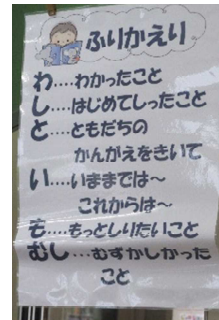 ふりかえり
わ‥‥わかったこと
し‥‥はじめてしったこと
と‥‥ともだちの
かんがえをきいて
い‥‥いままでは〜
これからは〜
も‥‥もっとしりたいこと
むし‥‥むずかしかった
こと